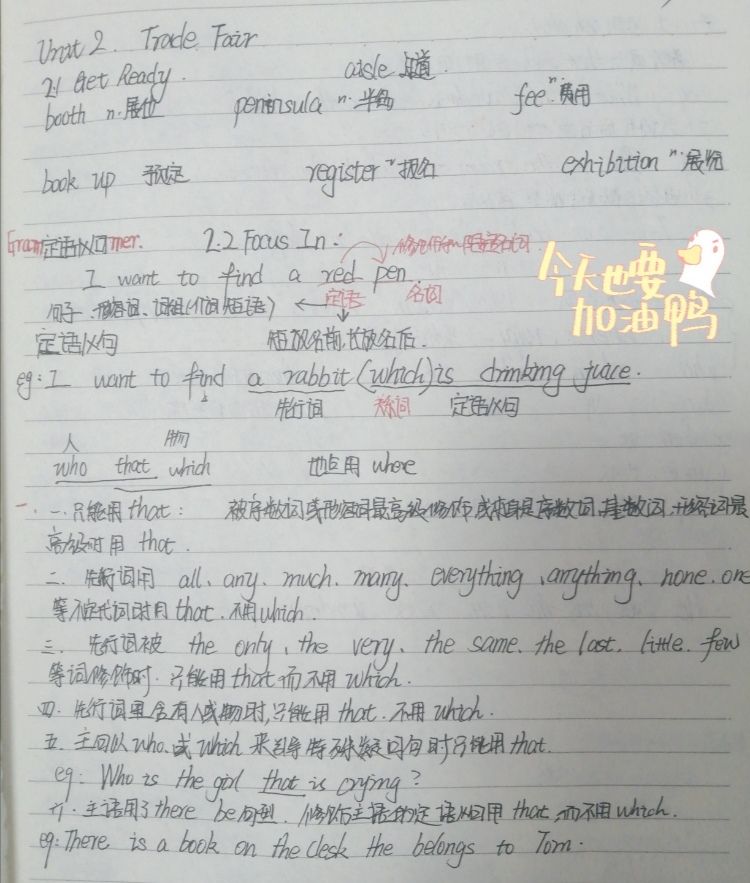 Unit 2. Trade Fair
2.1 Get Ready. aisle 走道.
booth n. 展位 peninsula n. 半岛 fee n. 费用
book up 预定 register v 报名 exhibition n. 展览
Grammer. 定语从句 2.2 Focus In: 修饰
I want to find a red pen.
句子、形容词、词组(介词短语) ← 定语 名词
定语从句 短放名前,长放名后.
今天也要
加油鸭
eg: I want to find a rabbit (which) is drinking juice.
先行词 关系词 定语从句
人 物
who that which 地点用 where
一. 只能用 that: 被序数词或形容词最高级修饰或本身是序数词、基数词、形容词最
高级时用 that.
二. 先行词用 all、any、much、many、everything、anything、none、one
等不定代词时用 that. 不用which.
三. 先行词被 the only、the very、the same、the last、little、few
等词修饰时.只能用that而不用 which.
四. 先行词里含有人或物时,只能用 that. 不用 which.
五. 主句以who、或 which 来引导特殊疑问句时只能用that.
eg: Who is the girl that is crying?
六. 主语用了there be句型. 修饰主语的定语从句用 that,而不用 which.
eg: There is a book on the desk the belongs to Tom.